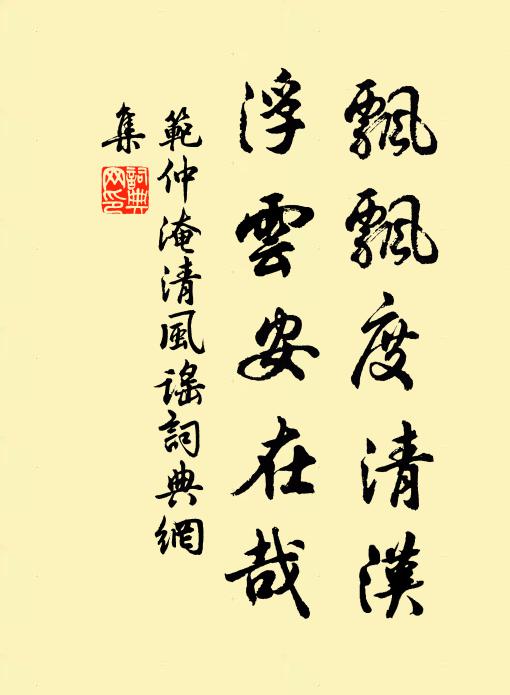 飄飄度清漢
浮雲安在哉
範仲淹清風謠詞典網
集
詞典
网印